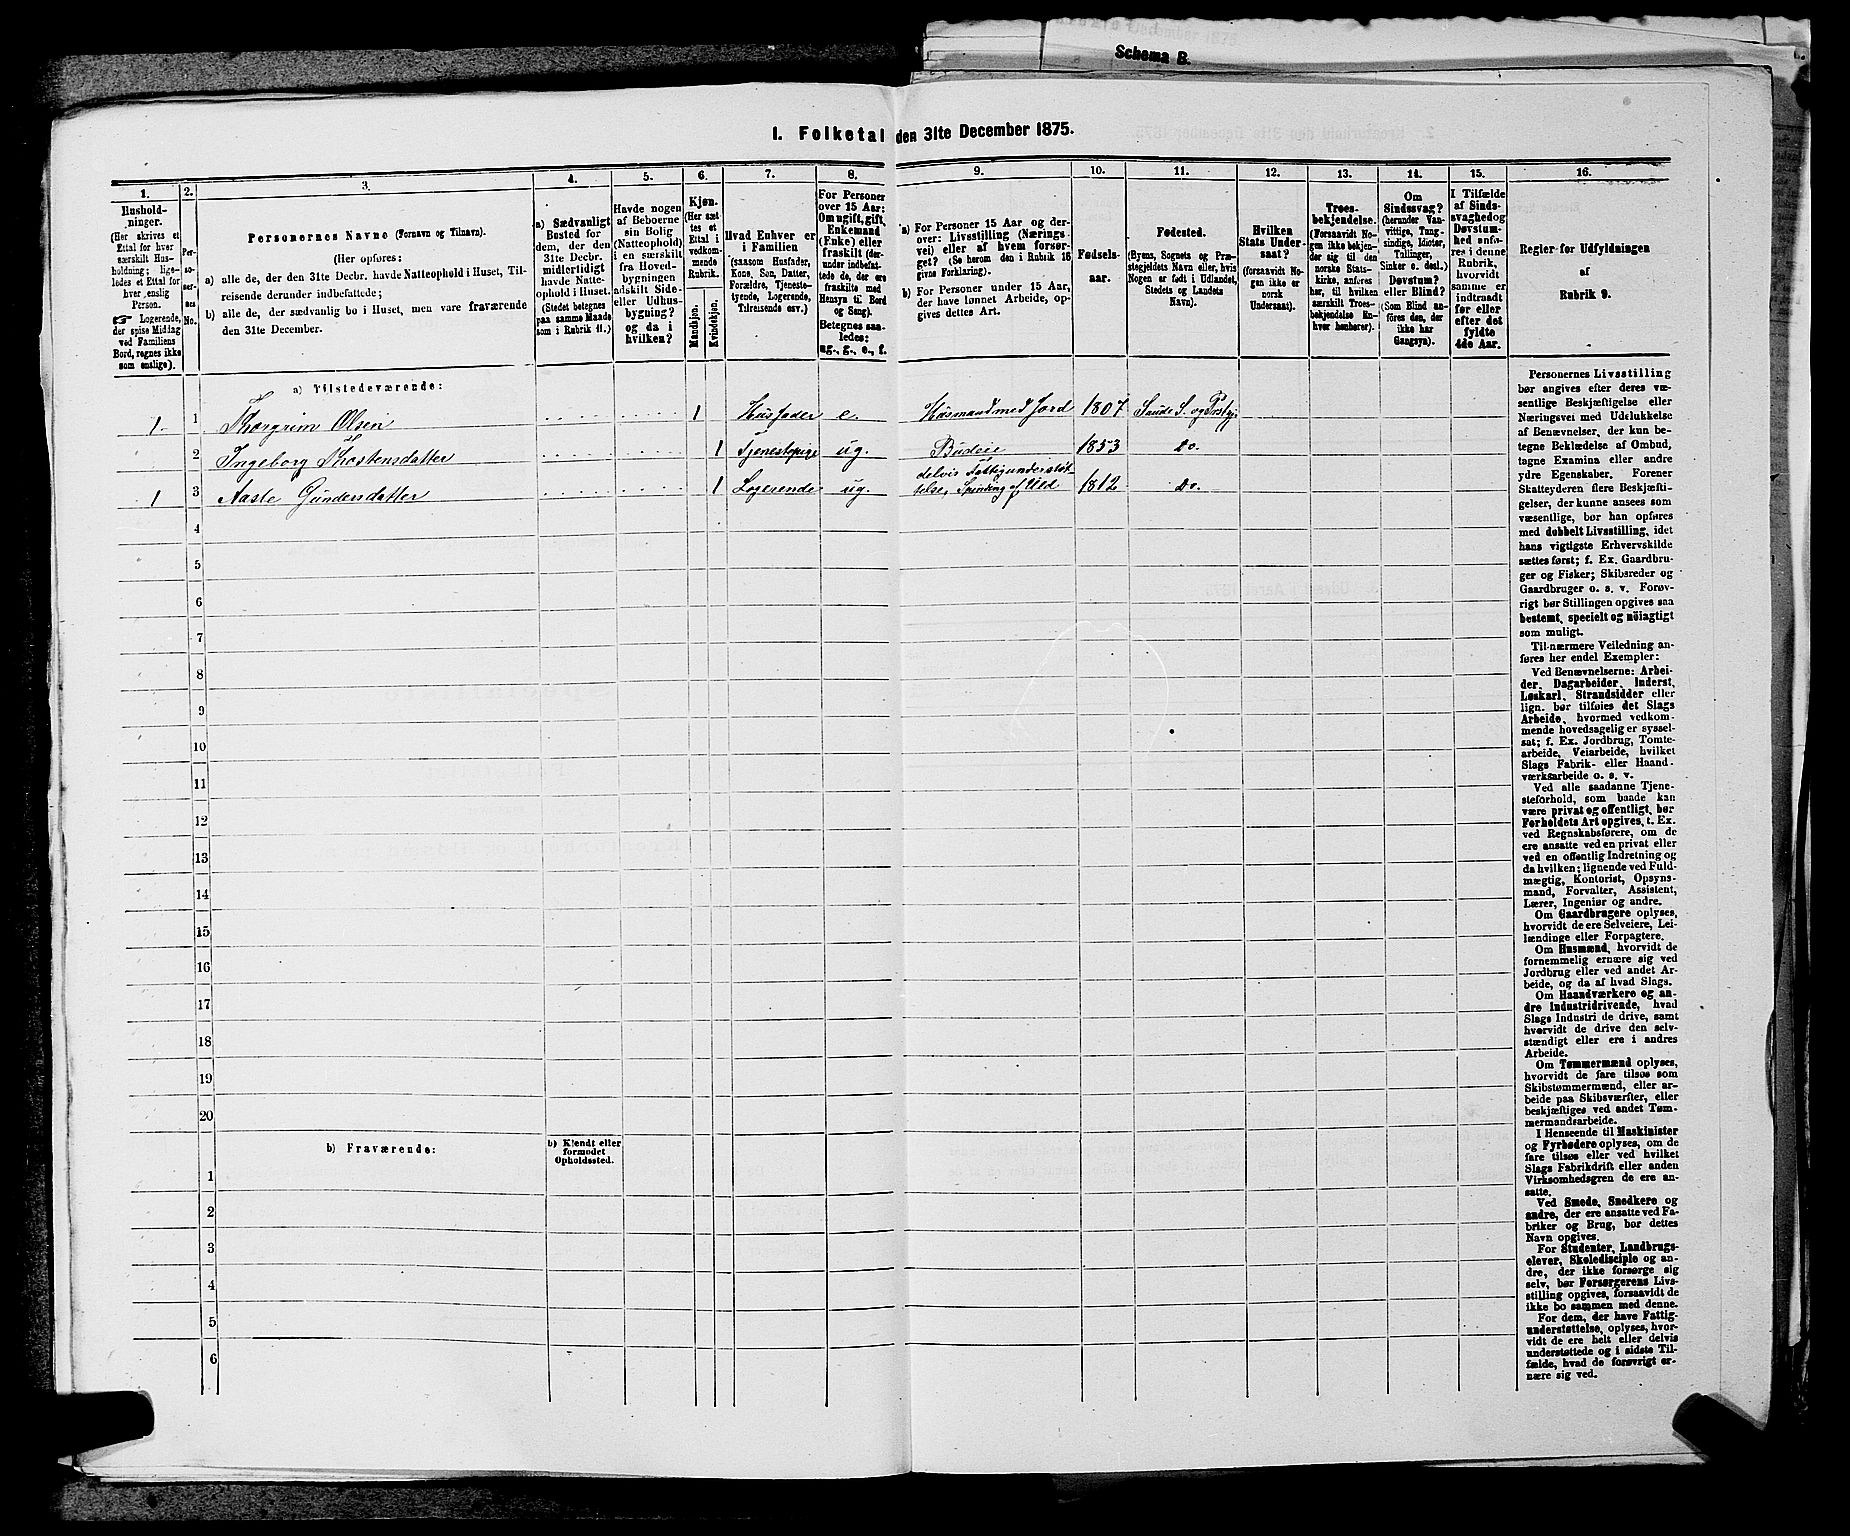 Schema B.
I. Folketal den 31te December 1875.
1.
2.
3.
4.
5.
6.
7.
8.
9.
10.
11.
12.
13.
14.
15.
16.
Hushold-
ninger.
(Her skrives et
Ettal for hver
særskilt Hus-
holdning; lige-
ledes et Ettal for
hver enslig
Person.
☞ Logerende,
der spise Middag
ved Familiens
Bord, regnes ikke
som enslige).
Per-
so-
ner-
nes
No.
Personernes Navne (Fornavn og Tilnavn).
(Her opføres:
a) alle de, der den 31te Decbr. havde Natteophold i Huset, Til-
reisende derunder indbefattede;
b) alle de, der sædvanlig bo i Huset, men vare fraværende
den 31te December.
a) Sædvanligt
Bosted for
dem, der den
31te Decbr.
midlertidigt
havde Natte-
ophold i Huset.
(Stedet betegnes
paa samme Maade
som i Rubrik 11.)
Havde nogen
af Beboerne
sin Bolig
(Natteophold)
i en særskilt
fra Hoved-
bygningen
adskilt Side-
eller Udhus-
bygning?
og da i
hvilken?
Kjøn.
(Her sæt-
tes et
Ettal i
vedkom-
mende
Rubrik.
Mandkjøn.
Kvindekjøn.
Hvad Enhver er
i Familien
(saasom Husfader,
Kone, Søn, Datter,
Forældre, Tjeneste-
tyende, Logerende,
Tilreisende osv.)
For Personer
over 15 Aar:
Om ugift, gift,
Enkemand
(Enke) eller
fraskilt (der-
under indbefat-
tede de, der ere
fraskilte med
Hensyn til Bord
og Seng).
Betegnes saa-
ledes:
ug., g., e., f.
a) For Personer 15 Aar og der-
over: Livsstilling (Nærings-
vei) eller af hvem forsør-
get? (Se herom den i Rubrik 16
givne Forklaring).
b) For Personer under 15 Aar,
der have lønnet Arbeide, op-
gives dettes Art.
Fødsels-
aar.
Fødested.
(Byens, Sognets og Præ-
stegjeldets Navn eller, hvis
Nogen er født i Udlandet,
Stedets og Landets
Navn).
Hvilken
Stats Under-
saat?
(forsaavidt No-
gen ikke er
norsk
Undersaat).
Troes-
bekjendelse.
(Forsaavidt No-
gen ikke bekjen-
der sig til den
norske Stats-
kirke, anføres
her, til hvilken
særskilt Troes-
bekjendelse En-
hver henhører).
Om
Sindssvag?
(herunder Van-
vittige, Tung-
sindige, Idioter,
Tullinger,
Sinker o. desl.)
Døvstum?
eller Blind?
(Som Blind an-
føres den, der
ikke har
Gangsyn).
I Tilfælde
af Sinds-
svaghed og
Døvstum-
hed anfø-
res i denne
Rubrik,
hvorvidt
samme er
indtraadt
før eller
efter det
fyldte
4de Aar.
Regler for Udfyldningen
af
Rubrik 9.
a) Tilstedeværende:
1. 1 Thorgrim Olsen 1 Husfader e. Husmand med Jord 1807 Saude S. og Præstgj.
2 Ingeborg Thostensdatter 1 Tjenestepige ug. Budeie 1853 Do.
1 3 Aaste Gundersdatter 1 Logerende ug. delvis Fattigunderstøt-
telse, Spinding af Uld 1812 Do.
4
5
6
7
8
9
10
11
12
13
14
15
16
17
18
19
20
b) Fraværende:
b) Kjendt eller
formodet
Opholdssted.
1
2
3
4
5
6
Personernes Livsstilling
bør angives efter deres væ-
sentlige Beskjæftigelse eller
Næringsvei med Udelukkelse
af Benævnelser, der kun be-
tegne Beklædelse af Ombud,
tagne Examina eller andre
ydre Egenskaber. Forener
Skatteyderen flere Beskjæfti-
gelser, der kunne ansees som
væsentlige, bør han opføres
med dobbelt Livsstilling, idet
hans vigtigste Erhvervskilde
sættes først; f. Ex. Gaardbru-
ger og Fisker; Skibsreder og
Gaardbruger o. s. v. Forøv-
rigt bør Stillingen opgives saa
bestemt, specielt og nöiagtigt
som muligt.
Til nærmere Veiledning an-
føres her endel Exempler:
Ved Benævnelserne: Arbei-
der, Dagarbeider, Inderst,
Løskarl, Strandsidder eller
lign. bør tilføies det Slags
Arbeide, hvormed vedkom-
mende hovedsagelig er syssel-
sat; f. Ex. Jordbrug, Tomte-
arbeide, Veiarbeide, hvilket
Slags Fabrik- eller Haand-
værksarbeide o. s. v.
Ved alle saadanne Tjene-
steforhold, som baade kan
være privat og offentligt, bør
Forholdets Art opgives, t. Ex.
ved Regnskabsførere, om de
ere ansatte ved en privat eller
ved en offentlig Indretning og
da hvilken; lignende ved Fuld-
mægtig, Kontorist, Opsyns-
mand, Forvalter, Assistent,
Lærer, Ingeniør og andre.
Om Gaardbrugere oplyses,
hvorvidt de ere Selveiere, Lei-
lændinge eller Forpagtere.
Om Husmænd, hvorvidt de
fornemmelig ernære sig ved
Jordbrug eller ved andet Ar-
beide, og da af hvad Slags.
Om Haandværkere og an-
dre Industridrivende, hvad
Slags Industri de drive, samt
hvorvidt de drive den selv-
stændigt eller ere i andres
Arbeide.
Om Tømmermænd oplyses,
hvorvidt de fare tilsøs som
Skibstømmermænd, eller ar-
beide paa Skibsværfter, eller
beskjæftiges ved andet Tøm-
mermandsarbeide.
I Henseende til Maskinister
og Fyrbødere oplyses, om de
fare tilsøs eller ved hvilket
Slags Fabrikdrift eller anden
Virksomhedsgren de ere an-
satte.
Ved Smede, Snedkere og
andre, der ere ansatte ved Fa-
briker og Brug, bør dettes
Navn opgives.
For Studenter, Landbrugs-
elever, Skoledisciple og an-
dre, der ikke forsørge sig
selv, bør Forsørgerens Livs-
stilling opgives, forsaavidt de
ikke bo sammen med denne.
For dem, der have Fattig-
understøttelse, oplyses, hvor-
vidt de ere helt eller delvis
understøttede og i sidste Til-
fælde, hvad de forøvrigt er-
nære sig ved.